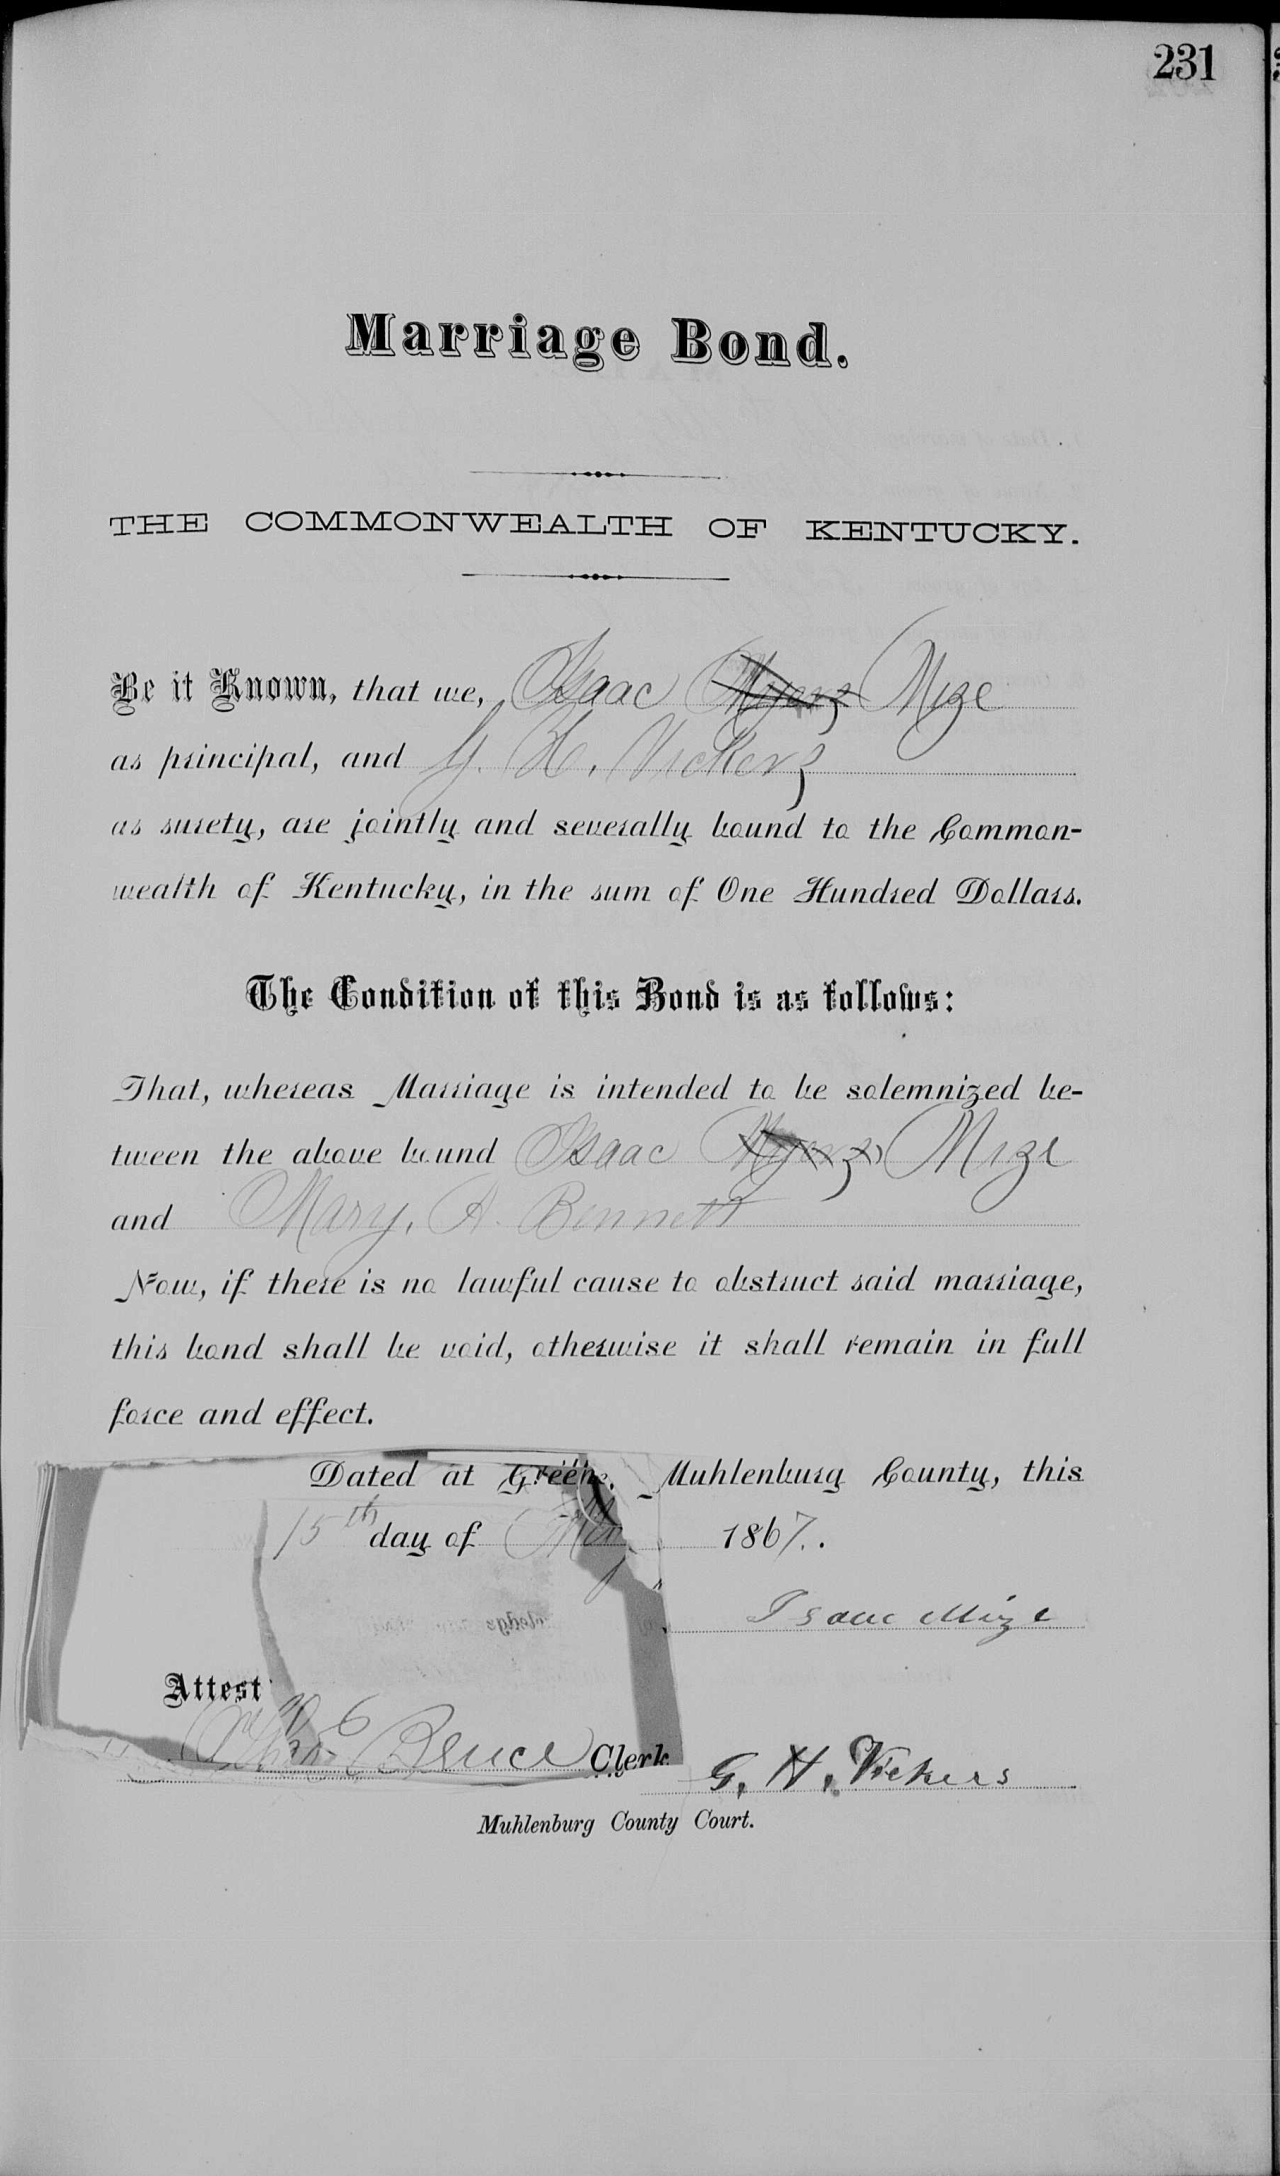 231
Marriage Bond.
THE COMMONWEALTH OF KENTUCKY.
Be it Known, that we, Isaac Myers Mize
as principal, and G. H. Vickers
as surety, are jointly and severally bound to the Common-
wealth of Kentucky, in the sum of One Hundred Dollars.
The Condition of this Bond is as follows:
That, whereas Marriage is intended to be solemnized be-
tween the above bound Isaac Myers Mize
and Mary, A. Bennett
Now, if there is no lawful cause to obstruct said marriage,
this bond shall be void, otherwise it shall remain in full
force and effect.
Dated at Greene, Muhlenburg County, this
15th day of 1867.
Isaac Mize
Attest
Bruce Clerk
G. H. Vickers
Muhlenburg County Court.